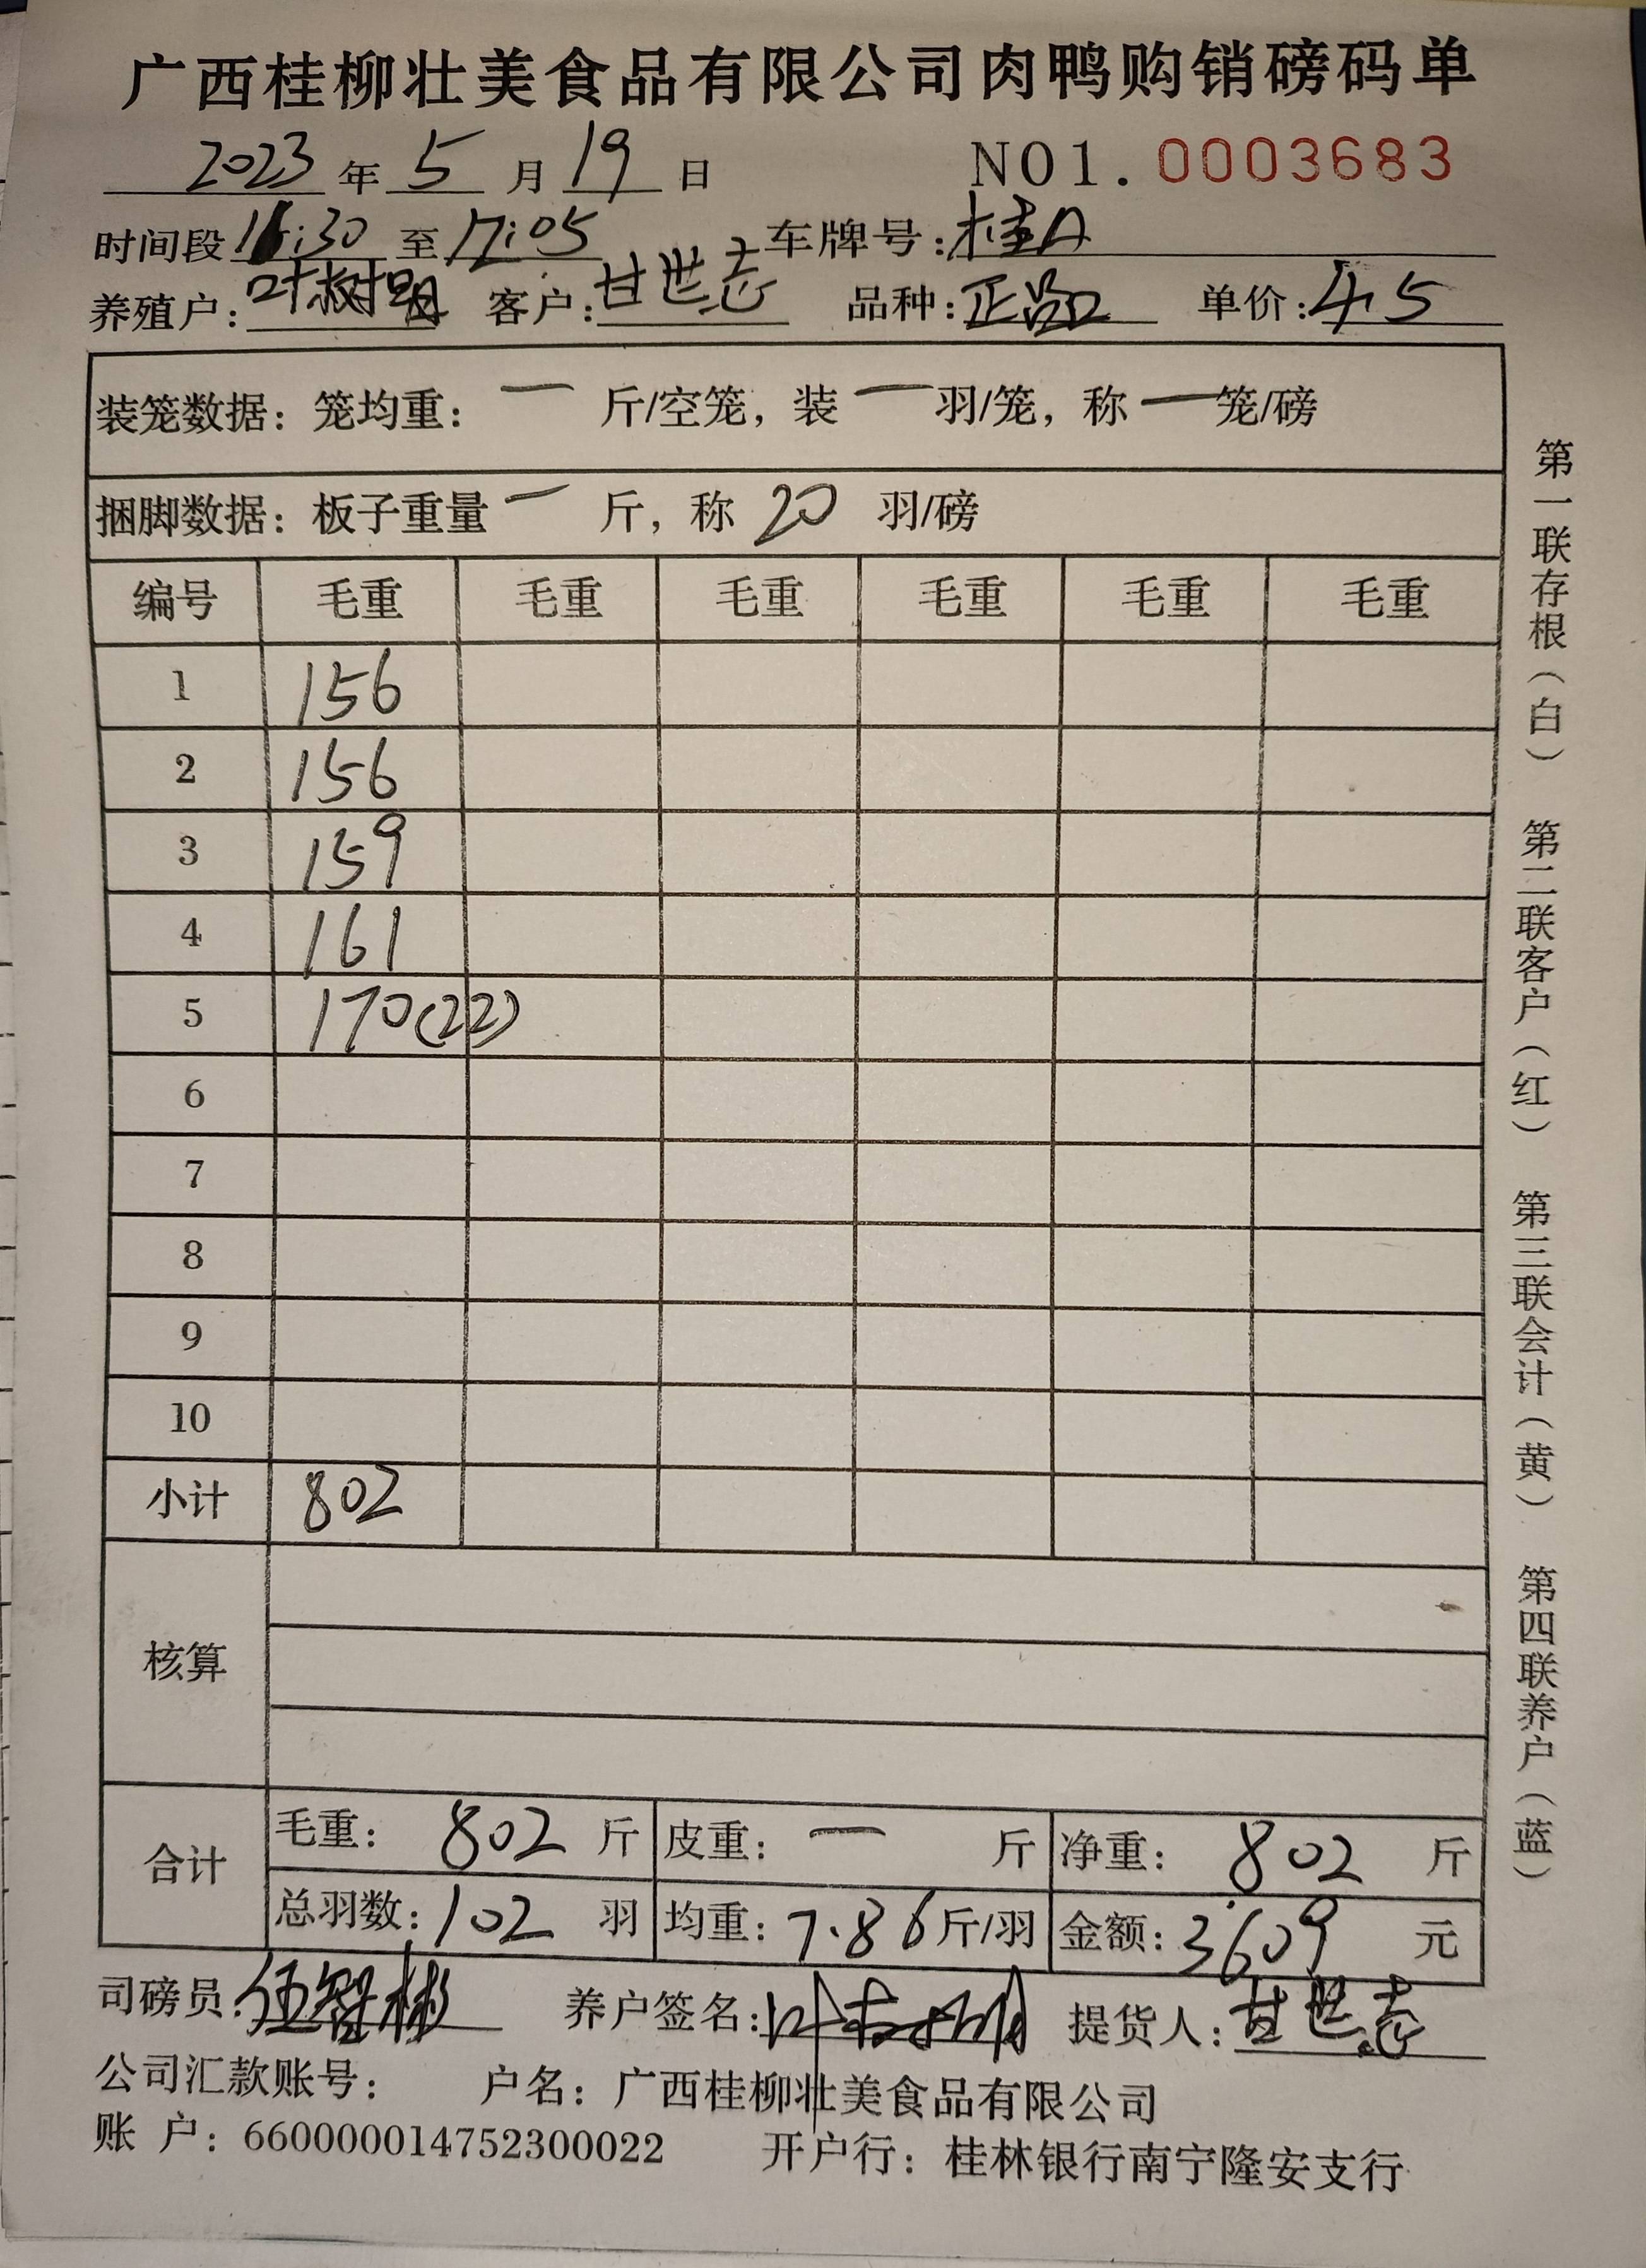 广西桂柳壮美食品有限公司肉鸭购销磅码单
2023 年 5 月 19 日 NO1. 0003683
时间段 16:30 至 17:05 车牌号: 桂A
养殖户: 叶树明 客户: 甘世志 品种: 正品 单价: 4.5
装笼数据: 笼均重: 一 斤/空笼, 装 一 羽/笼, 称 一 笼/磅
捆脚数据: 板子重量 一 斤, 称 20 羽/磅
编号 毛重 毛重 毛重 毛重 毛重 毛重
1 156
2 156
3 159
4 161
5 170(22)
6
7
8
9
10
小计 802
核算
合计
毛重: 802 斤 皮重: 一 斤 净重: 802 斤
总羽数: 102 羽 均重: 7.86 斤/羽 金额: 3609 元
司磅员: 伍智彬 养户签名: 叶树明 提货人: 甘世志
公司汇款账号: 户名: 广西桂柳壮美食品有限公司
账 户: 660000014752300022 开户行: 桂林银行南宁隆安支行
第一联存根(白) 第二联客户(红) 第三联会计(黄) 第四联养户(蓝)